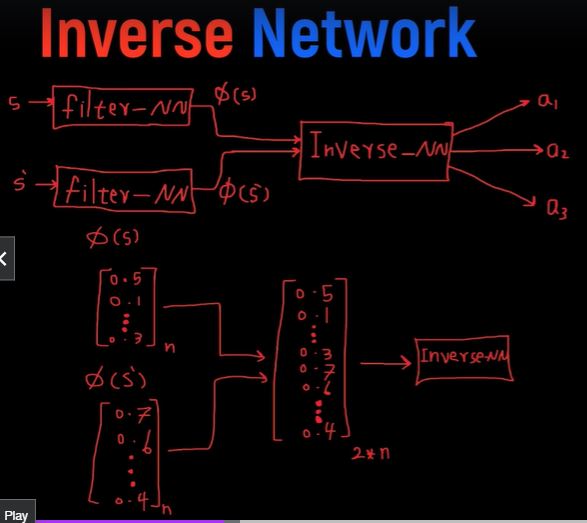 Inverse Network
s filter-NN ϕ(s)
s' filter-NN ϕ(s')
Inverse-NN
a₁
a₂
a₃
ϕ(s)
0.5
0.1
⋮
0.3
n
ϕ(s')
0.7
0.6
⋮
0.4
n
0.5
0.1
⋮
0.3
0.7
0.6
⋮
0.4
2*n
Inverse-NN
Play